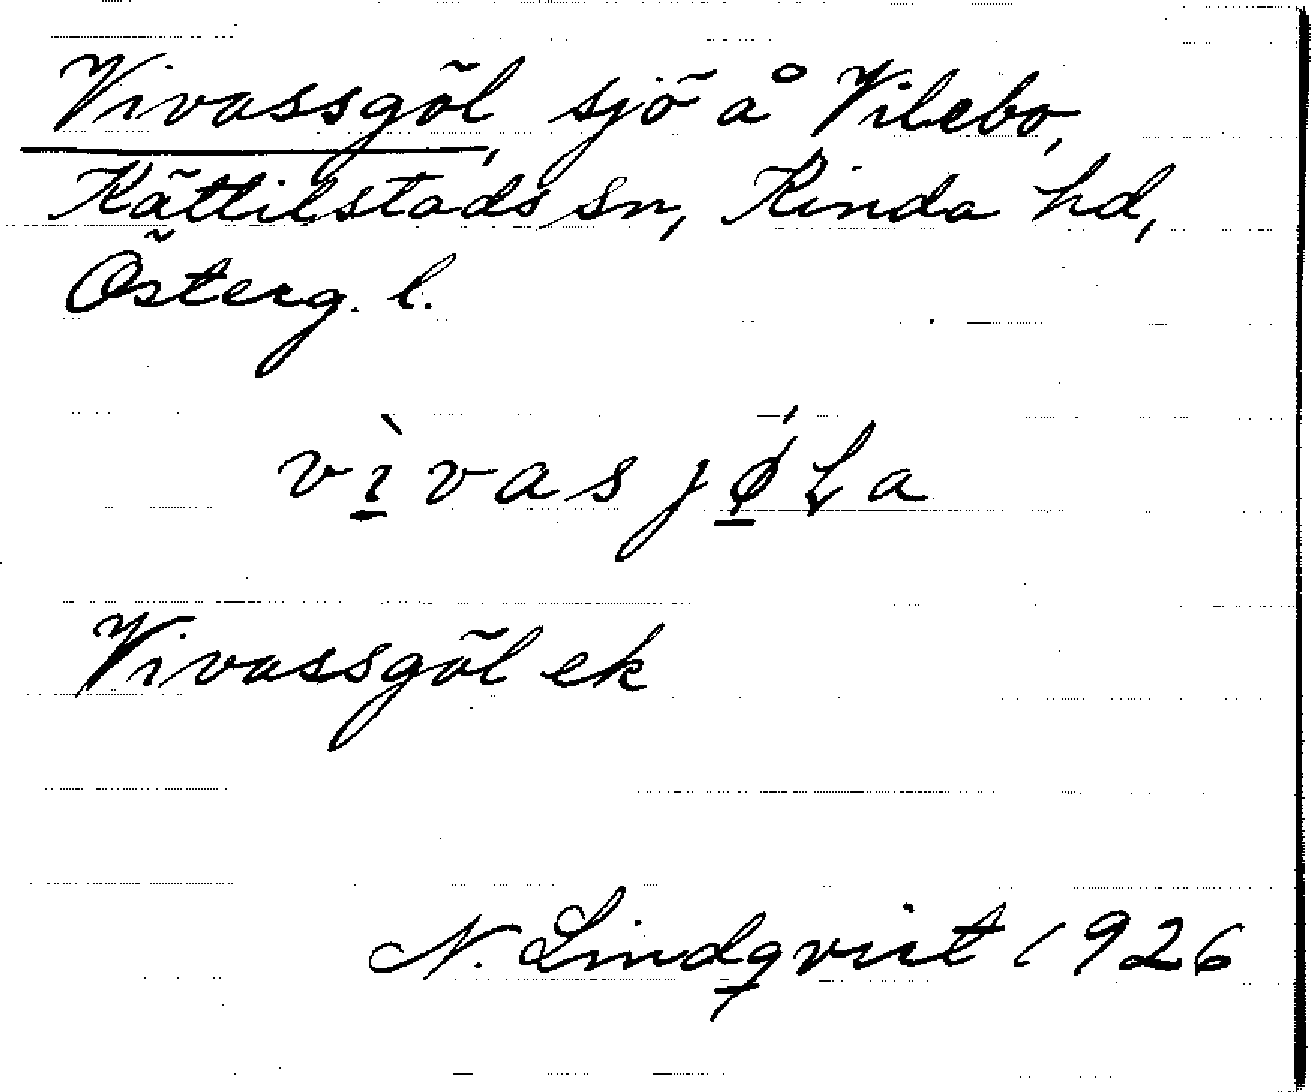 Vivassgöl, sjö å Vilebo,
Kättilstads sn, Kinda hd,
Österg. l.
vìvasjǿLa
Vivassgöl ek
N. Lindqvist 1926